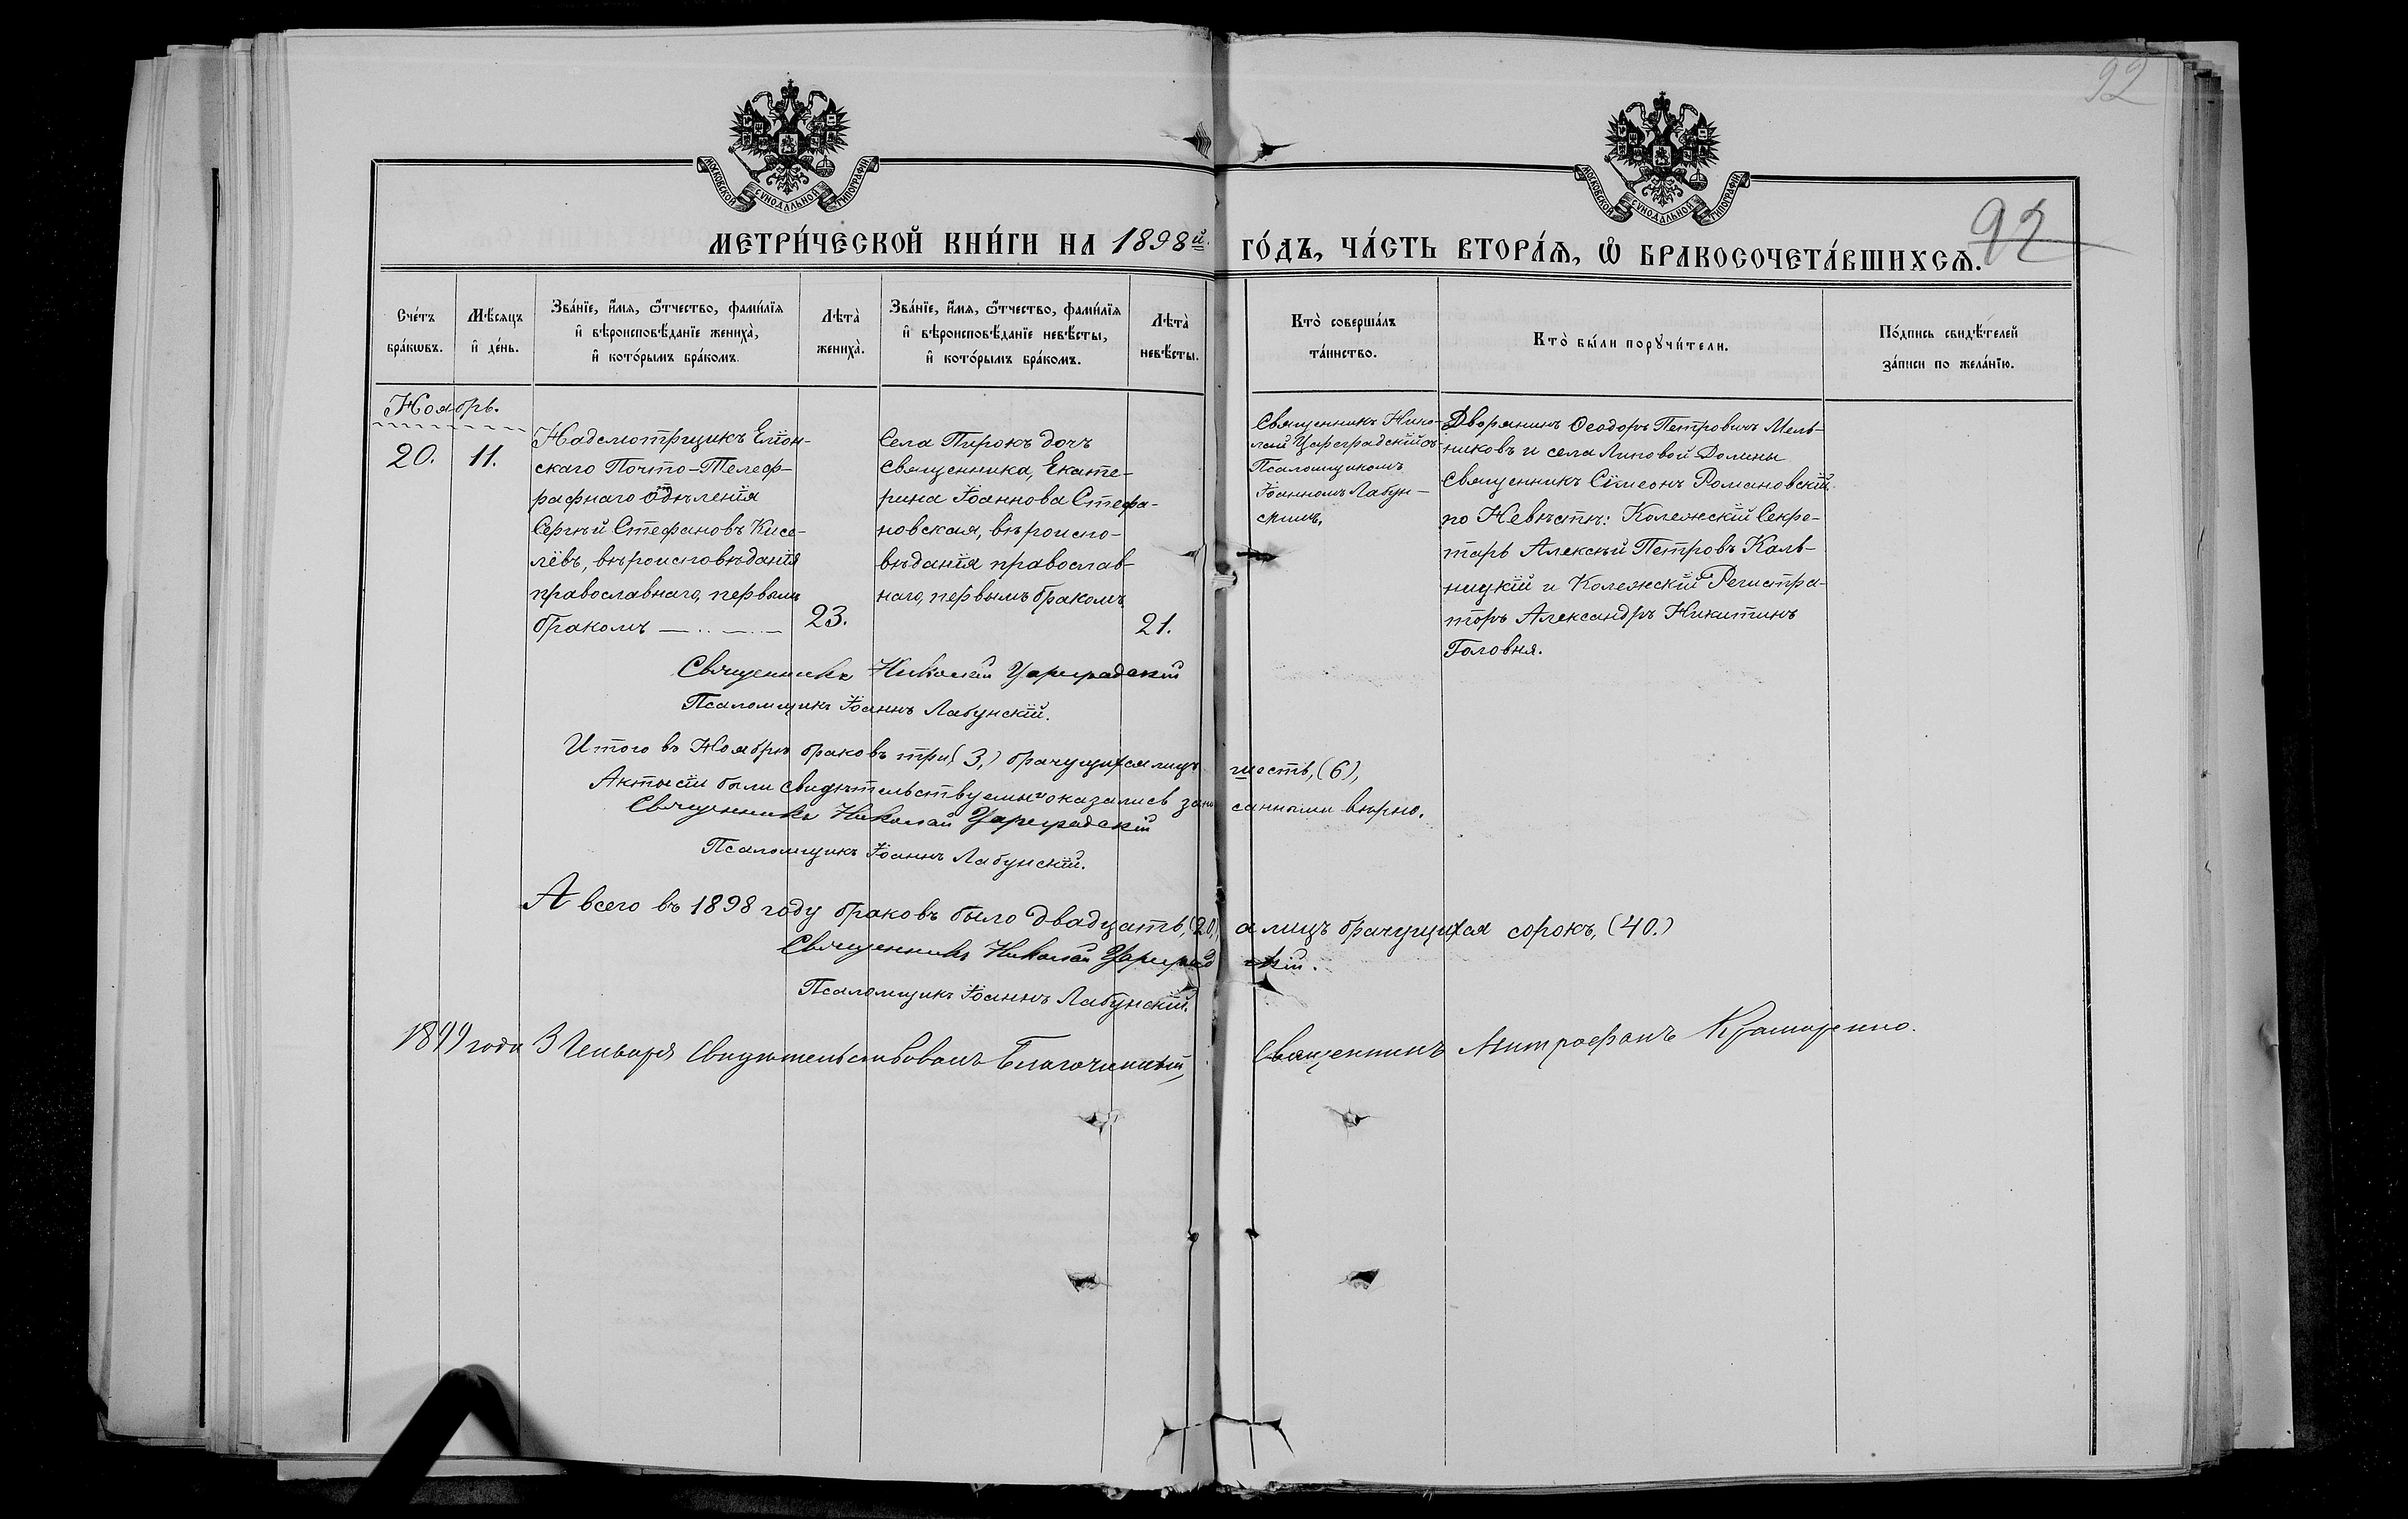 92
МОСКОВСКОЙ СѴНОДАЛЬНОЙ ТИПОГРАФІИ
МОСКОВСКОЙ СѴНОДАЛЬНОЙ ТИПОГРАФІИ
92
МЕТРИ́ЧЕСКОЙ КНИ́ГИ НА 1898й. ГО́ДЪ, ЧА́СТЬ ВТОРА́Ѧ, Ѽ БРАКОСОЧЕТА́ВШИХСѦ.
Сче́тъ
бра́кѡвъ.
Мѣ́сяцъ
и҆ де́нь.
Зва́нїе, и҆́мѧ, ѻ҆́тчество, фами́лїѧ
и҆ вѣроисповѣ́данїе жениха̀,
и҆ кото́рымъ бра́комъ.
Лѣта̀
жениха̀.
Зва́нїе, и҆́мѧ, ѻ҆́тчество, фами́лїѧ
и҆ вѣроисповѣ́данїе невѣ́сты,
и҆ кото́рымъ бра́комъ.
Лѣта̀
невѣ́сты.
Кто̀ соверша́лъ
та́инство.
Кто̀ бы́ли порꙋчи́тели.
По́дпись свидѣ́телей
за́писи по жела́нїю.
Ноябрь.
20.
11.
Надсмотрщикъ
скаго Почто-Телеф-
рафнаго Отдѣленія
Сергѣй Стефановъ Кисе-
лёвъ, вѣроисповѣданія
православнаго, первымъ
бракомъ
23.
Села Пирокъ дочъ
Священника, Екате-
рина Іоаннова Стефа-
новская, вѣроиспо-
вѣданія православ-
наго, первымъ бракомъ
21.
Священникъ Нико-
лай Цареградскій съ
Псаломщикомъ
Іоанномъ Лабун-
скимъ.
Дворянинъ Ѳеодоръ Петровичъ Мель-
никовъ и села Липовой Долины
Священникъ Сімеонъ Романовскій.
по Невѣстѣ: Колежскій Секре-
тарь Алексѣй Петровъ Каль-
ницкій и Колежскій Регистра-
торъ Александръ Никитинъ
Головня.
Священникъ Николай Цареградскій
Псаломщикъ Іоаннъ Лабунскій.
Итого въ Ноябрѣ браковъ три, (3,) брачущихся лицъ шесть, (6),
Акты сіи были свидѣтельствуемы и оказались записанными вѣрно.
Священникъ Николай Цареградскій
Псаломщикъ Іоаннъ Лабунскій.
А всего въ 1898 году браковъ было двадцать, (20), а лицъ брачущихся сорокъ, (40.)
Священникъ Николай Цареградскій.
Псаломщикъ Іоаннъ Лабунскій.
1899 года 3 Генваря Свидѣтельствовалъ Благочинный, Священникъ Митрофанъ Крамаренко.